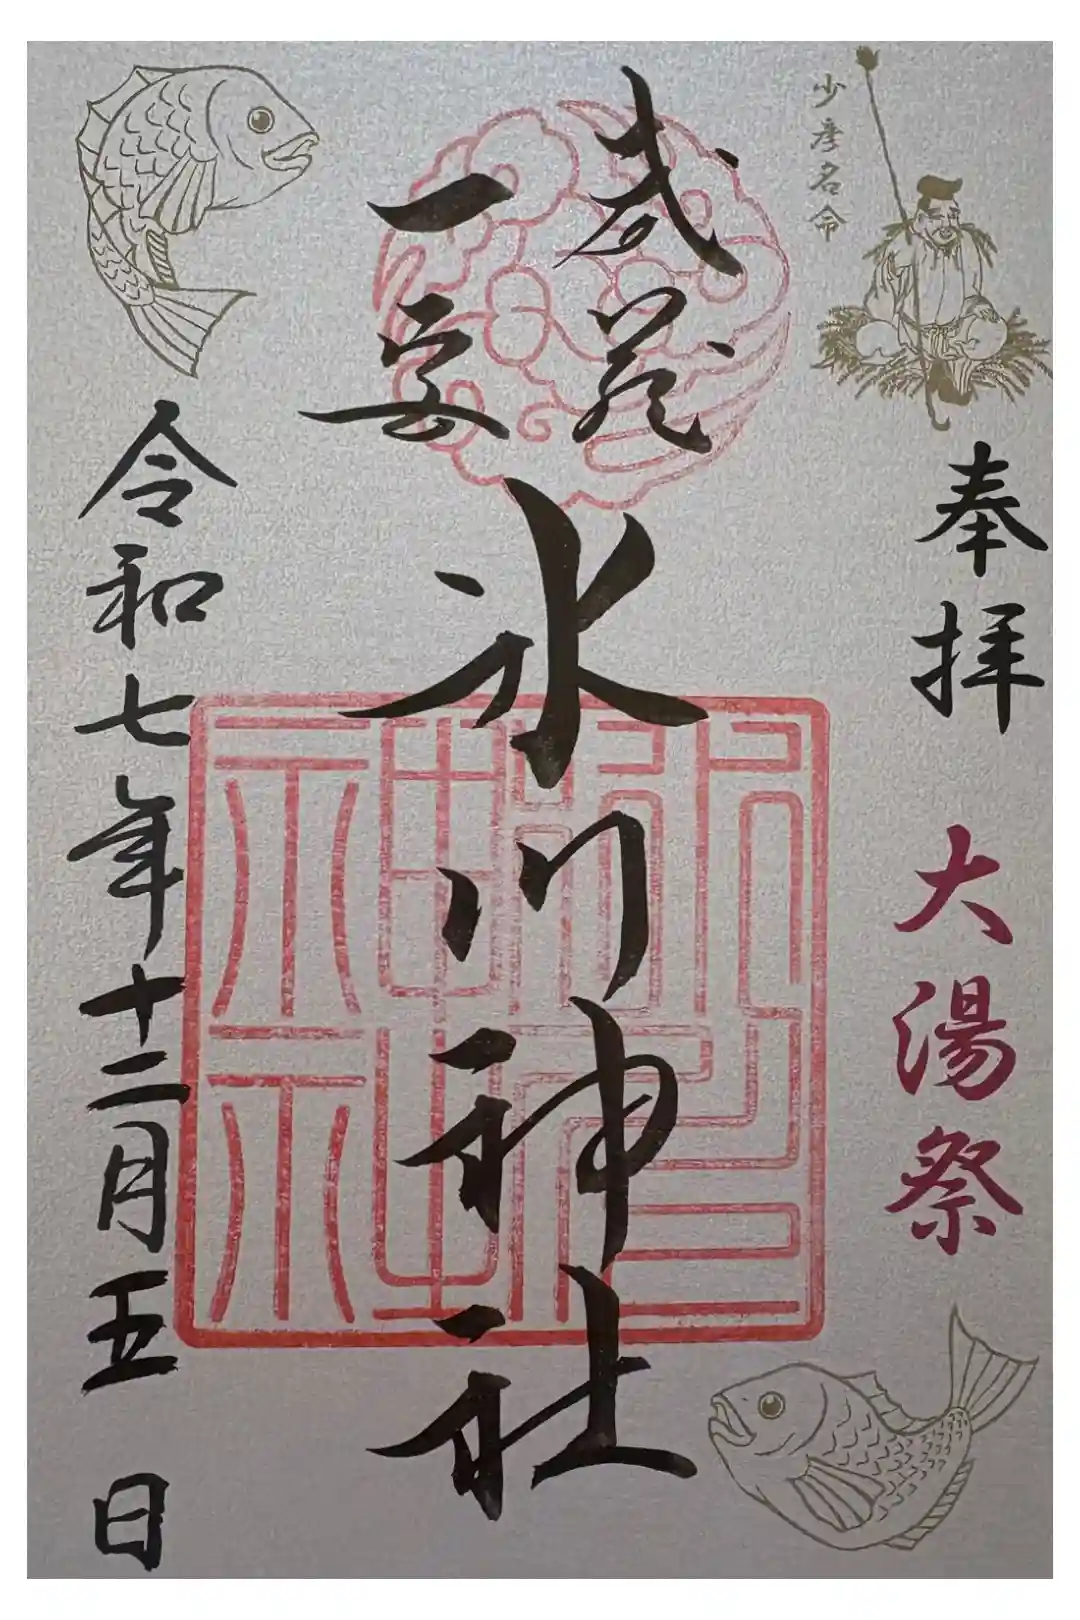 少彦名命
奉拝 大湯祭
武蔵
一宮
氷川神社
令和七年十二月五日